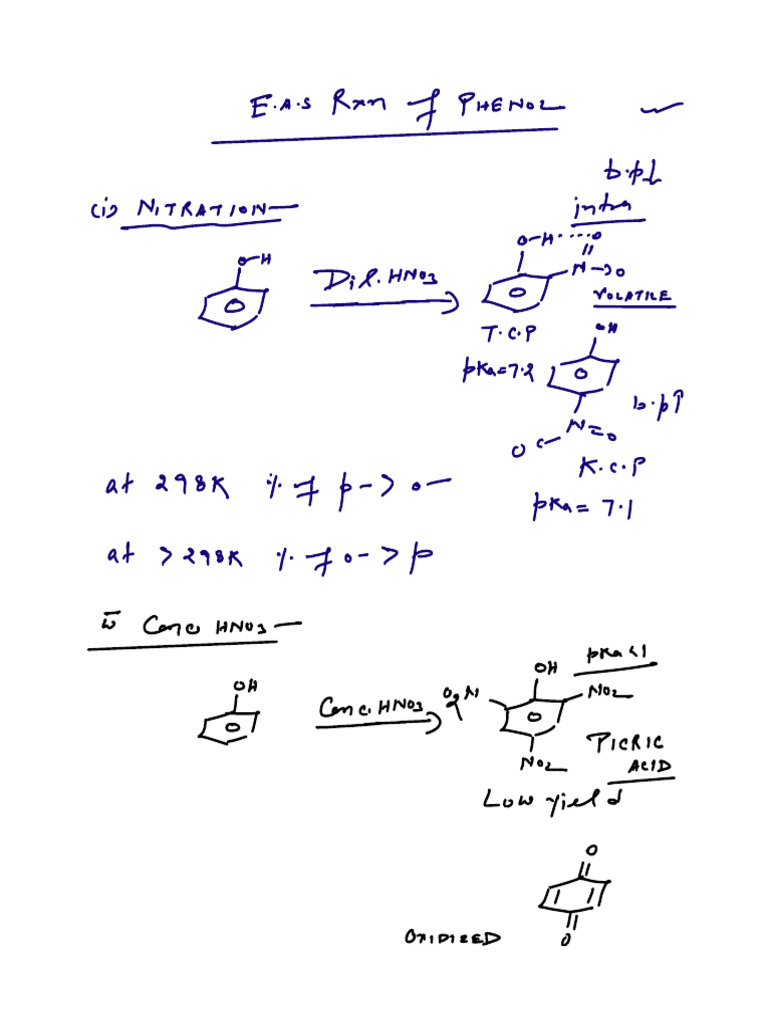 E.A.S Rxn of PHENOL
b.p↓
(i) NITRATION—
intra
O-H····O
O-H
Dil. HNO3
N→O
VOLATILE
T.C.P
OH
pKa=7.2
b.p↑
N=O
O
K.C.P
at 298K % of p- > o-
pKa = 7.1
at > 298K % of o- > p
w̄ Conc HNO3—
pKa<1
OH
OH
O2N
NO2
Conc. HNO3
PICRIC
NO2
ACID
Low yield
O
OXIDIZED
O